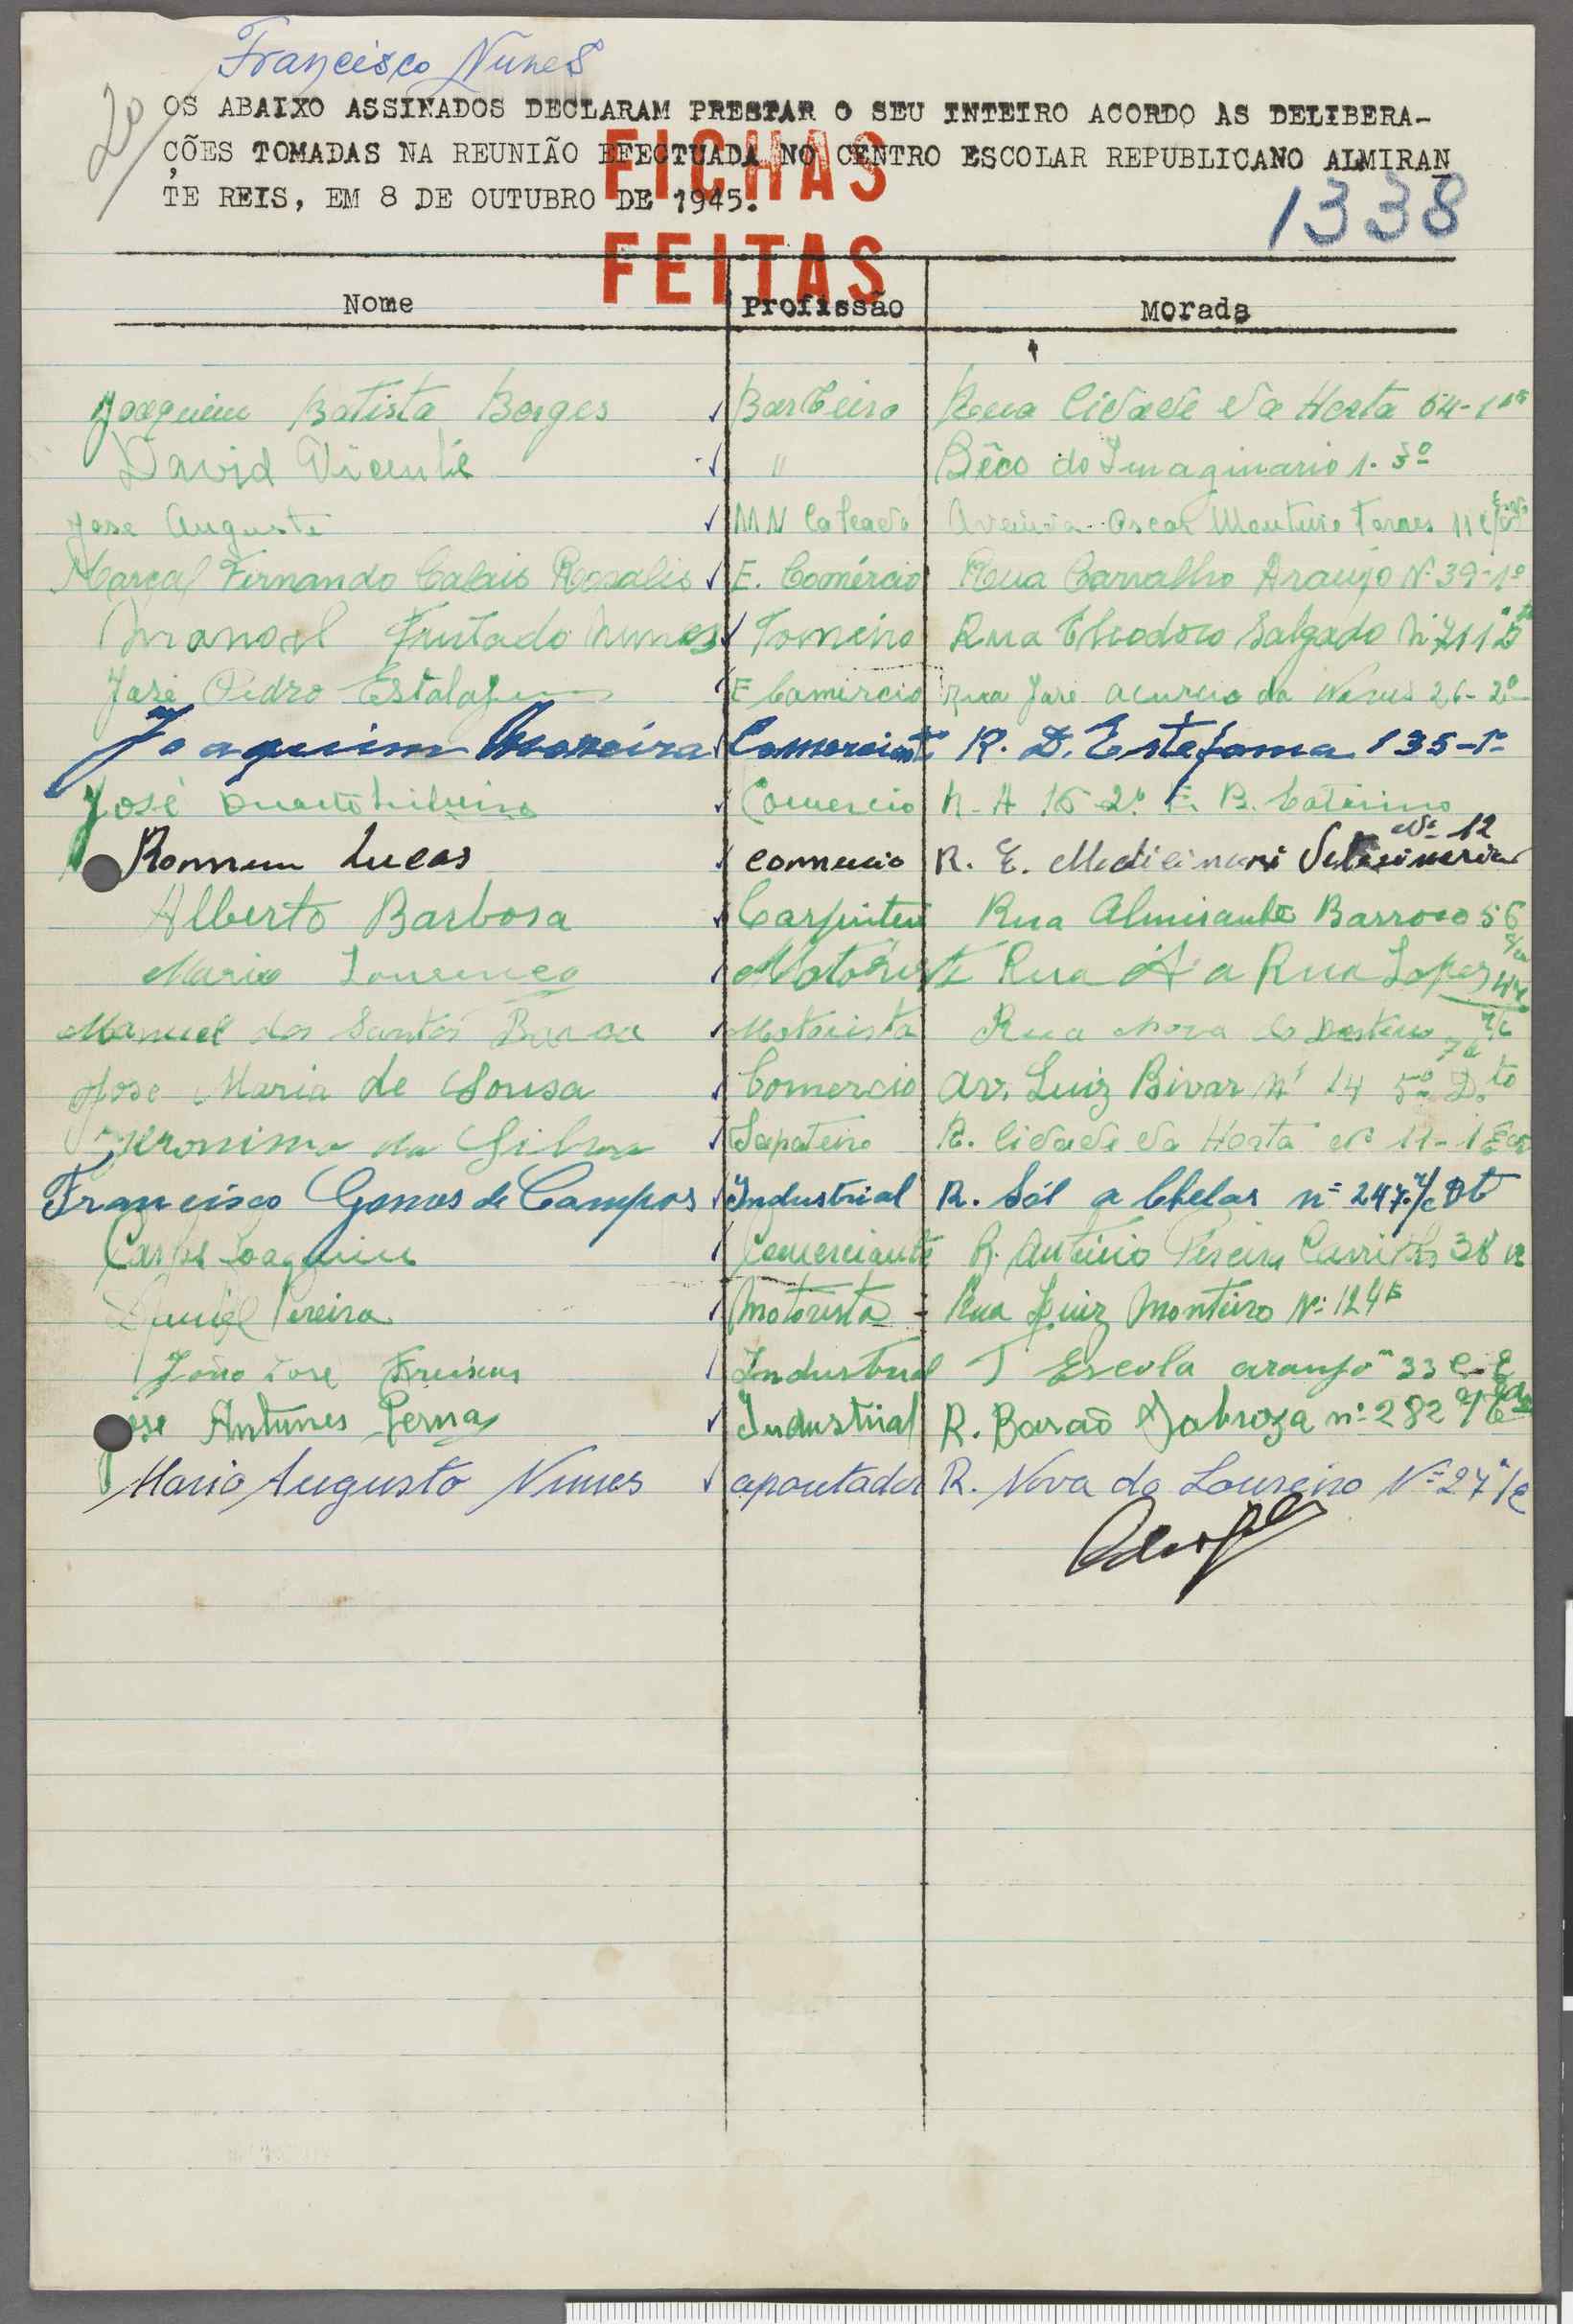 Francisco Nunes
20
OS ABAIXO ASSINADOS DECLARAM PRESTAR O SEU INTEIRO ACORDO AS DELIBERA-
ÇÕES TOMADAS NA REUNIÃO EFECTUADA NO CENTRO ESCOLAR REPUBLICANO ALMIRAN
TE REIS, EM 8 DE OUTUBRO DE 1945.
FICHAS
FEITAS
1338
Nome Profissão Morada
Joaquim Batista Borges Barbeiro Rua Cidade da Horta 64-1
David Vicente " Bêco do Imaginario 1. 3º
Jose Augusto Avenida Oscar Monteiro Torres 11
Marçal Fernando Calais Rosalis E. Comércio Rua Carvalho Araujo Nº 39-1º
Manoel Furtado Nunes Torneiro Rua Theodoro Salgado
José Pedro Estalagem E Comércio Rua José da 26-2º
Joaquim Moreira Comerciante R. D. Estefania 135-1º
José Duarte Comercio 2º
Lucas comercio R. E. Medicina Veterinaria Nº 12
Alberto Barbosa Carpinteiro Rua Almirante Barroso 56
Mario Lourenço Motorista Rua A a Rua Lopes
Manuel dos Santos Motorista Rua Nova do
Jose Maria de Sousa Comercio Av. Luiz Bivar Nº 14 5º D.to
Jeronimo da Silva Sapateiro R. Cidade da Horta nº 11-1 Esq
Francisco Gomes de Campos Industrial R. Sól a Chelas nº 247 r/c Dt
Carlos Joaquim Comerciante R. António Pereira Carrilho 38
Pereira Motorista - Rua Luiz Monteiro Nº 124
João José Industrial T Escola araujo nº 33
José Antunes Industrial R. Barão Sabroza nº 282
Mario Augusto Nunes apontador R. Nova do Loureiro Nº 27 r/c